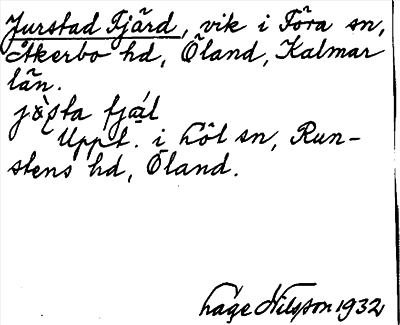 Jurstad Fjärd, vik i Föra sn,
Åkerbo hd, Öland, Kalmar
län.
Uppt. i Löt sn, Run-
stens hd, Öland.
Lage Nilsson 1932